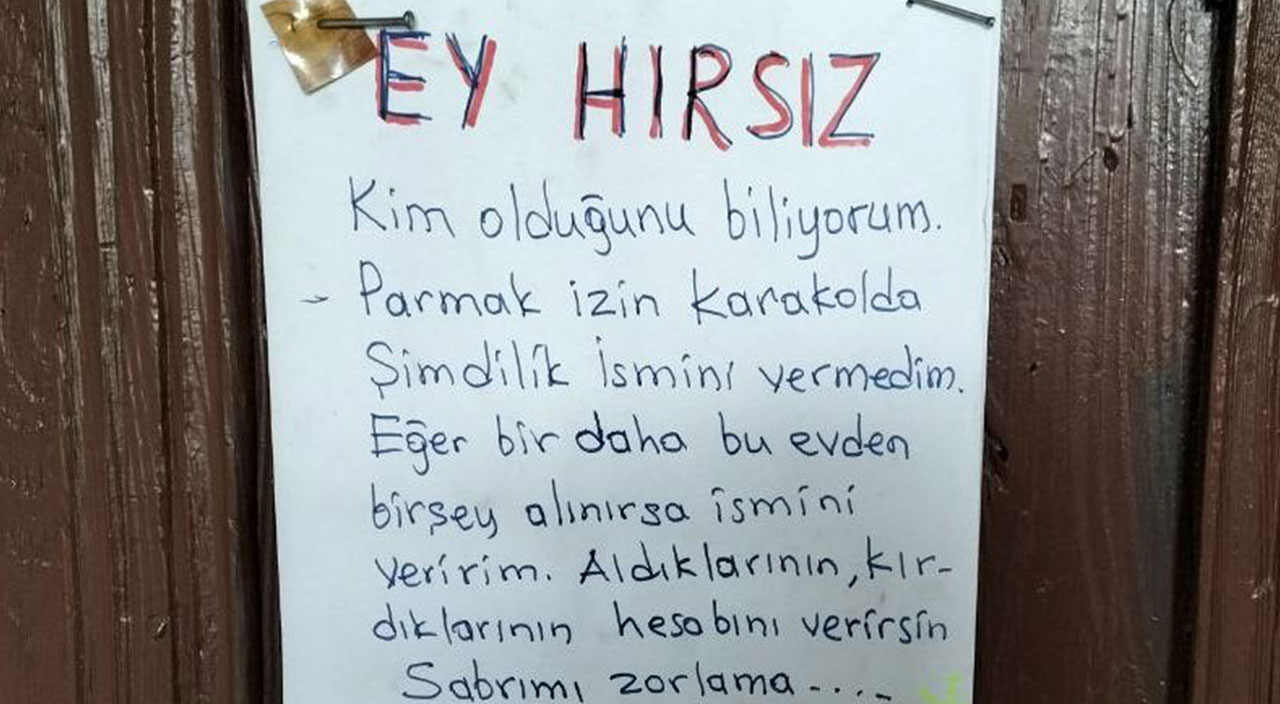 EY HIRSIZ
Kim olduğunu biliyorum.
- Parmak izin karakolda
Şimdilik İsmini vermedim.
Eğer bir daha bu evden
birşey alınırsa ismini
veririm. Aldıklarının, kır-
dıklarının hesabını verirsin
Sabrımı zorlama.....